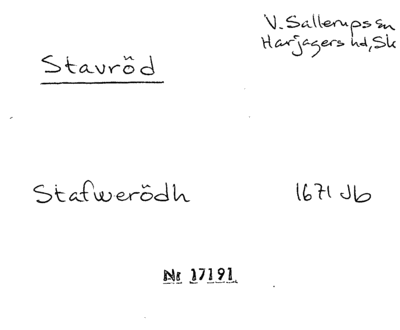 V. Sallerups sn
Harjagers hd, Sk
Stavröd
Stafwerödh 1671 Jb
Nr 17191.